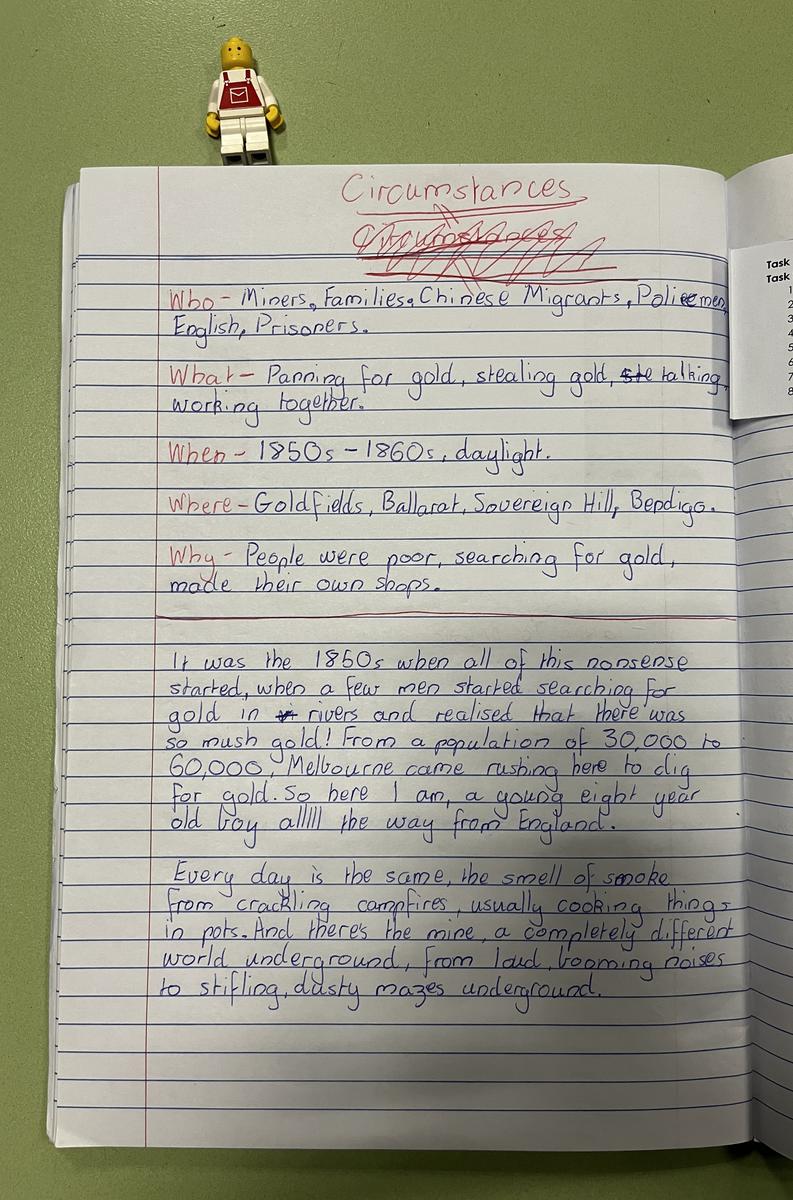 Circumstances
Circumstances
Who - Miners, Families, Chinese Migrants, Policemen,
English, Prisoners.
What - Panning for gold, stealing gold, ste talking,
working together.
When - 1850s - 1860s, daylight.
Where - Goldfields, Ballarat, Sovereign Hill, Bendigo.
Why - People were poor, searching for gold,
made their own shops.
It was the 1850s when all of this nonsense
started, when a few men started searching for
gold in rivers and realised that there was
so mush gold! From a population of 30,000 to
60,000, Melbourne came rushing here to dig
for gold. So here I am, a young eight year
old boy allllll the way from England.
Every day is the same, the smell of smoke
from crackling campfires, usually cooking things
in pots. And there's the mine, a completely different
world underground, from loud, booming noises
to stifling, dusty mazes underground.
Task
Task
1
2
3
4
5
6
7
8